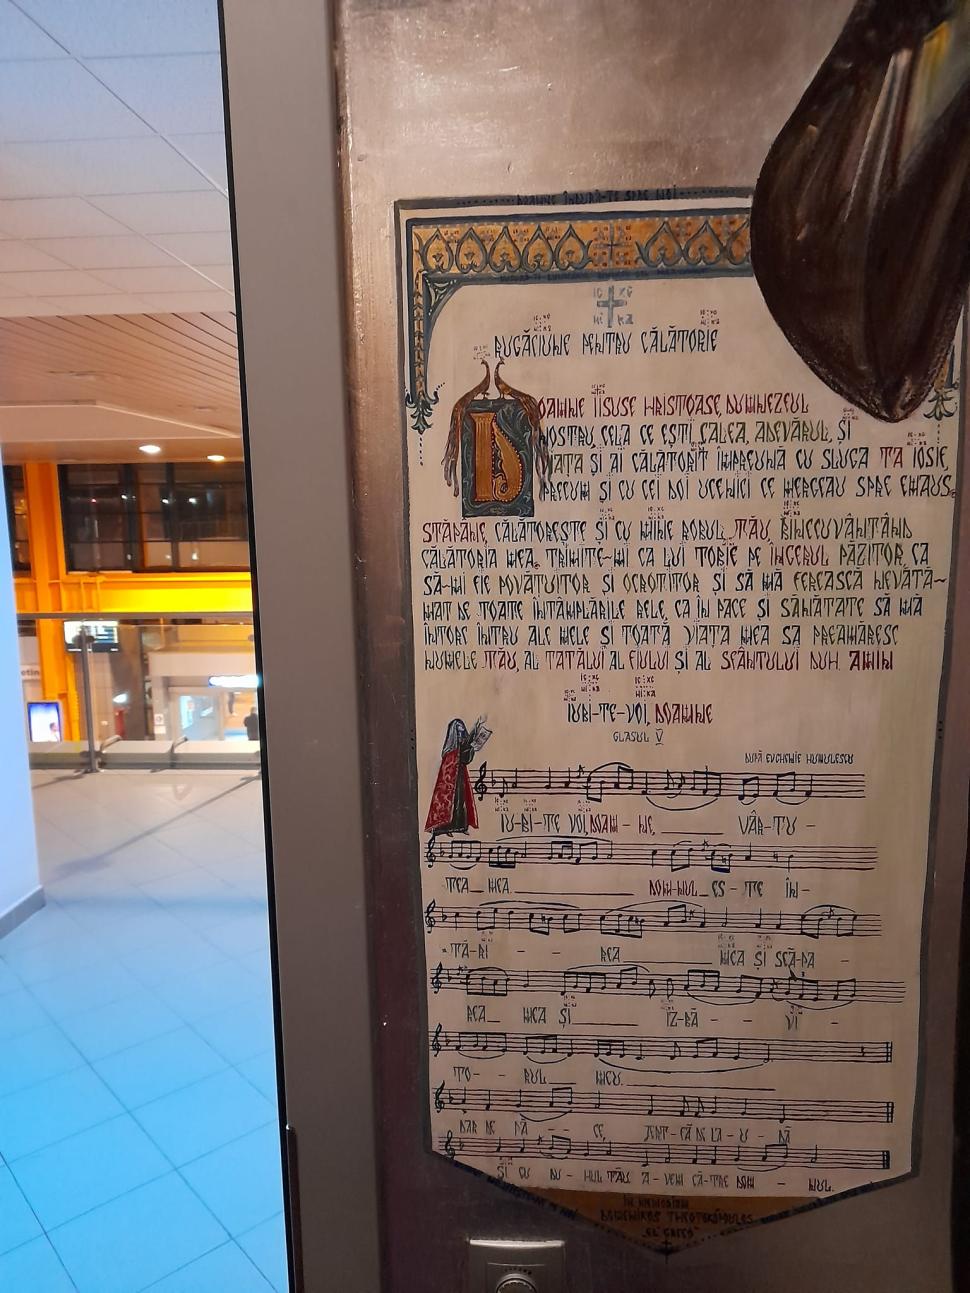 DOAMNE ÎNDURĂ-TE SPRE NOI
IC XC
NI KA
RUGĂCIUNE PENTRU CĂLĂTORIE
DOAMNE IISUSE HRISTOASE, DUMNEZEUL
NOSTRU, CELA CE EȘTI CALEA, ADEVĂRUL, ȘI
VIAȚA ȘI AI CĂLĂTORIT ÎMPREUNĂ CU SLUGA TA IOSIF,
PRECUM ȘI CU CEI DOI UCENICI CE MERGEAU SPRE EMAUS.
STĂPÂNE, CĂLĂTOREȘTE ȘI CU MINE ROBUL TĂU, BINECUVÂNTÂND
CĂLĂTORIA MEA. TRIMITE-MI CA LUI TOBIE PE ÎNGERUL PĂZITOR, CA
SĂ-MI FIE POVĂȚUITOR ȘI OCROTITOR ȘI SĂ MĂ FEREASCĂ NEVĂTĂ-
MAT DE TOATE ÎNTÂMPLĂRILE RELE, CA ÎN PACE ȘI SĂNĂTATE SĂ MĂ
ÎNTORC ÎNTRU ALE MELE ȘI TOATĂ VIAȚA MEA SĂ PREAMĂRESC
NUMELE TĂU, AL TATĂLUI AL FIULUI ȘI AL SFÂNTULUI DUH. AMIN
IUBI-TE-VOI, DOAMNE
GLASUL V
DUPĂ EUGHENIE HUMULESCU
IU-BI-TE VOI, DOAM - NE, VÂR-TU -
TEA MEA DOM-NUL ES - TE ÎN-
TĂ-RI - - REA MEA ȘI SCĂ-PA -
REA MEA ȘI IZ-BĂ - - VI -
TO- - RUL MEU.
DAR DE PA - - CE, JERT-FĂ DE LA-U - DĂ
ȘI CU DU-HUL TĂU A-VEM CĂ-TRE DOM - NUL.
IN MEMORIAM
DOMENIKOS THEOTOKÓPOULOS
"EL GRECO"